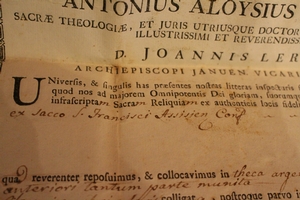 ANTONIUS ALOYSIUS
SACRÆ THEOLOGIÆ, ET JURIS UTRIUSQUE DOCTOR
ILLUSTRISSIMI ET REVERENDISS
D. JOANNIS LER
ARCHIEPISCOPI JANUEN. VICARI
UNiversis, & singulis has præsentes nostras litteras inspecturis f
quod nos ad majorem Omnipotentis Dei gloriam, suorumq
infrascriptam Sacram Reliquiam ex authenticis locis fidel
ex sacco S. Francisci Assisien Conf
quã reverenter reposuimus, & collocavimus in theca arge
anteriori tantum parte munita
colligata, nostroque parvo